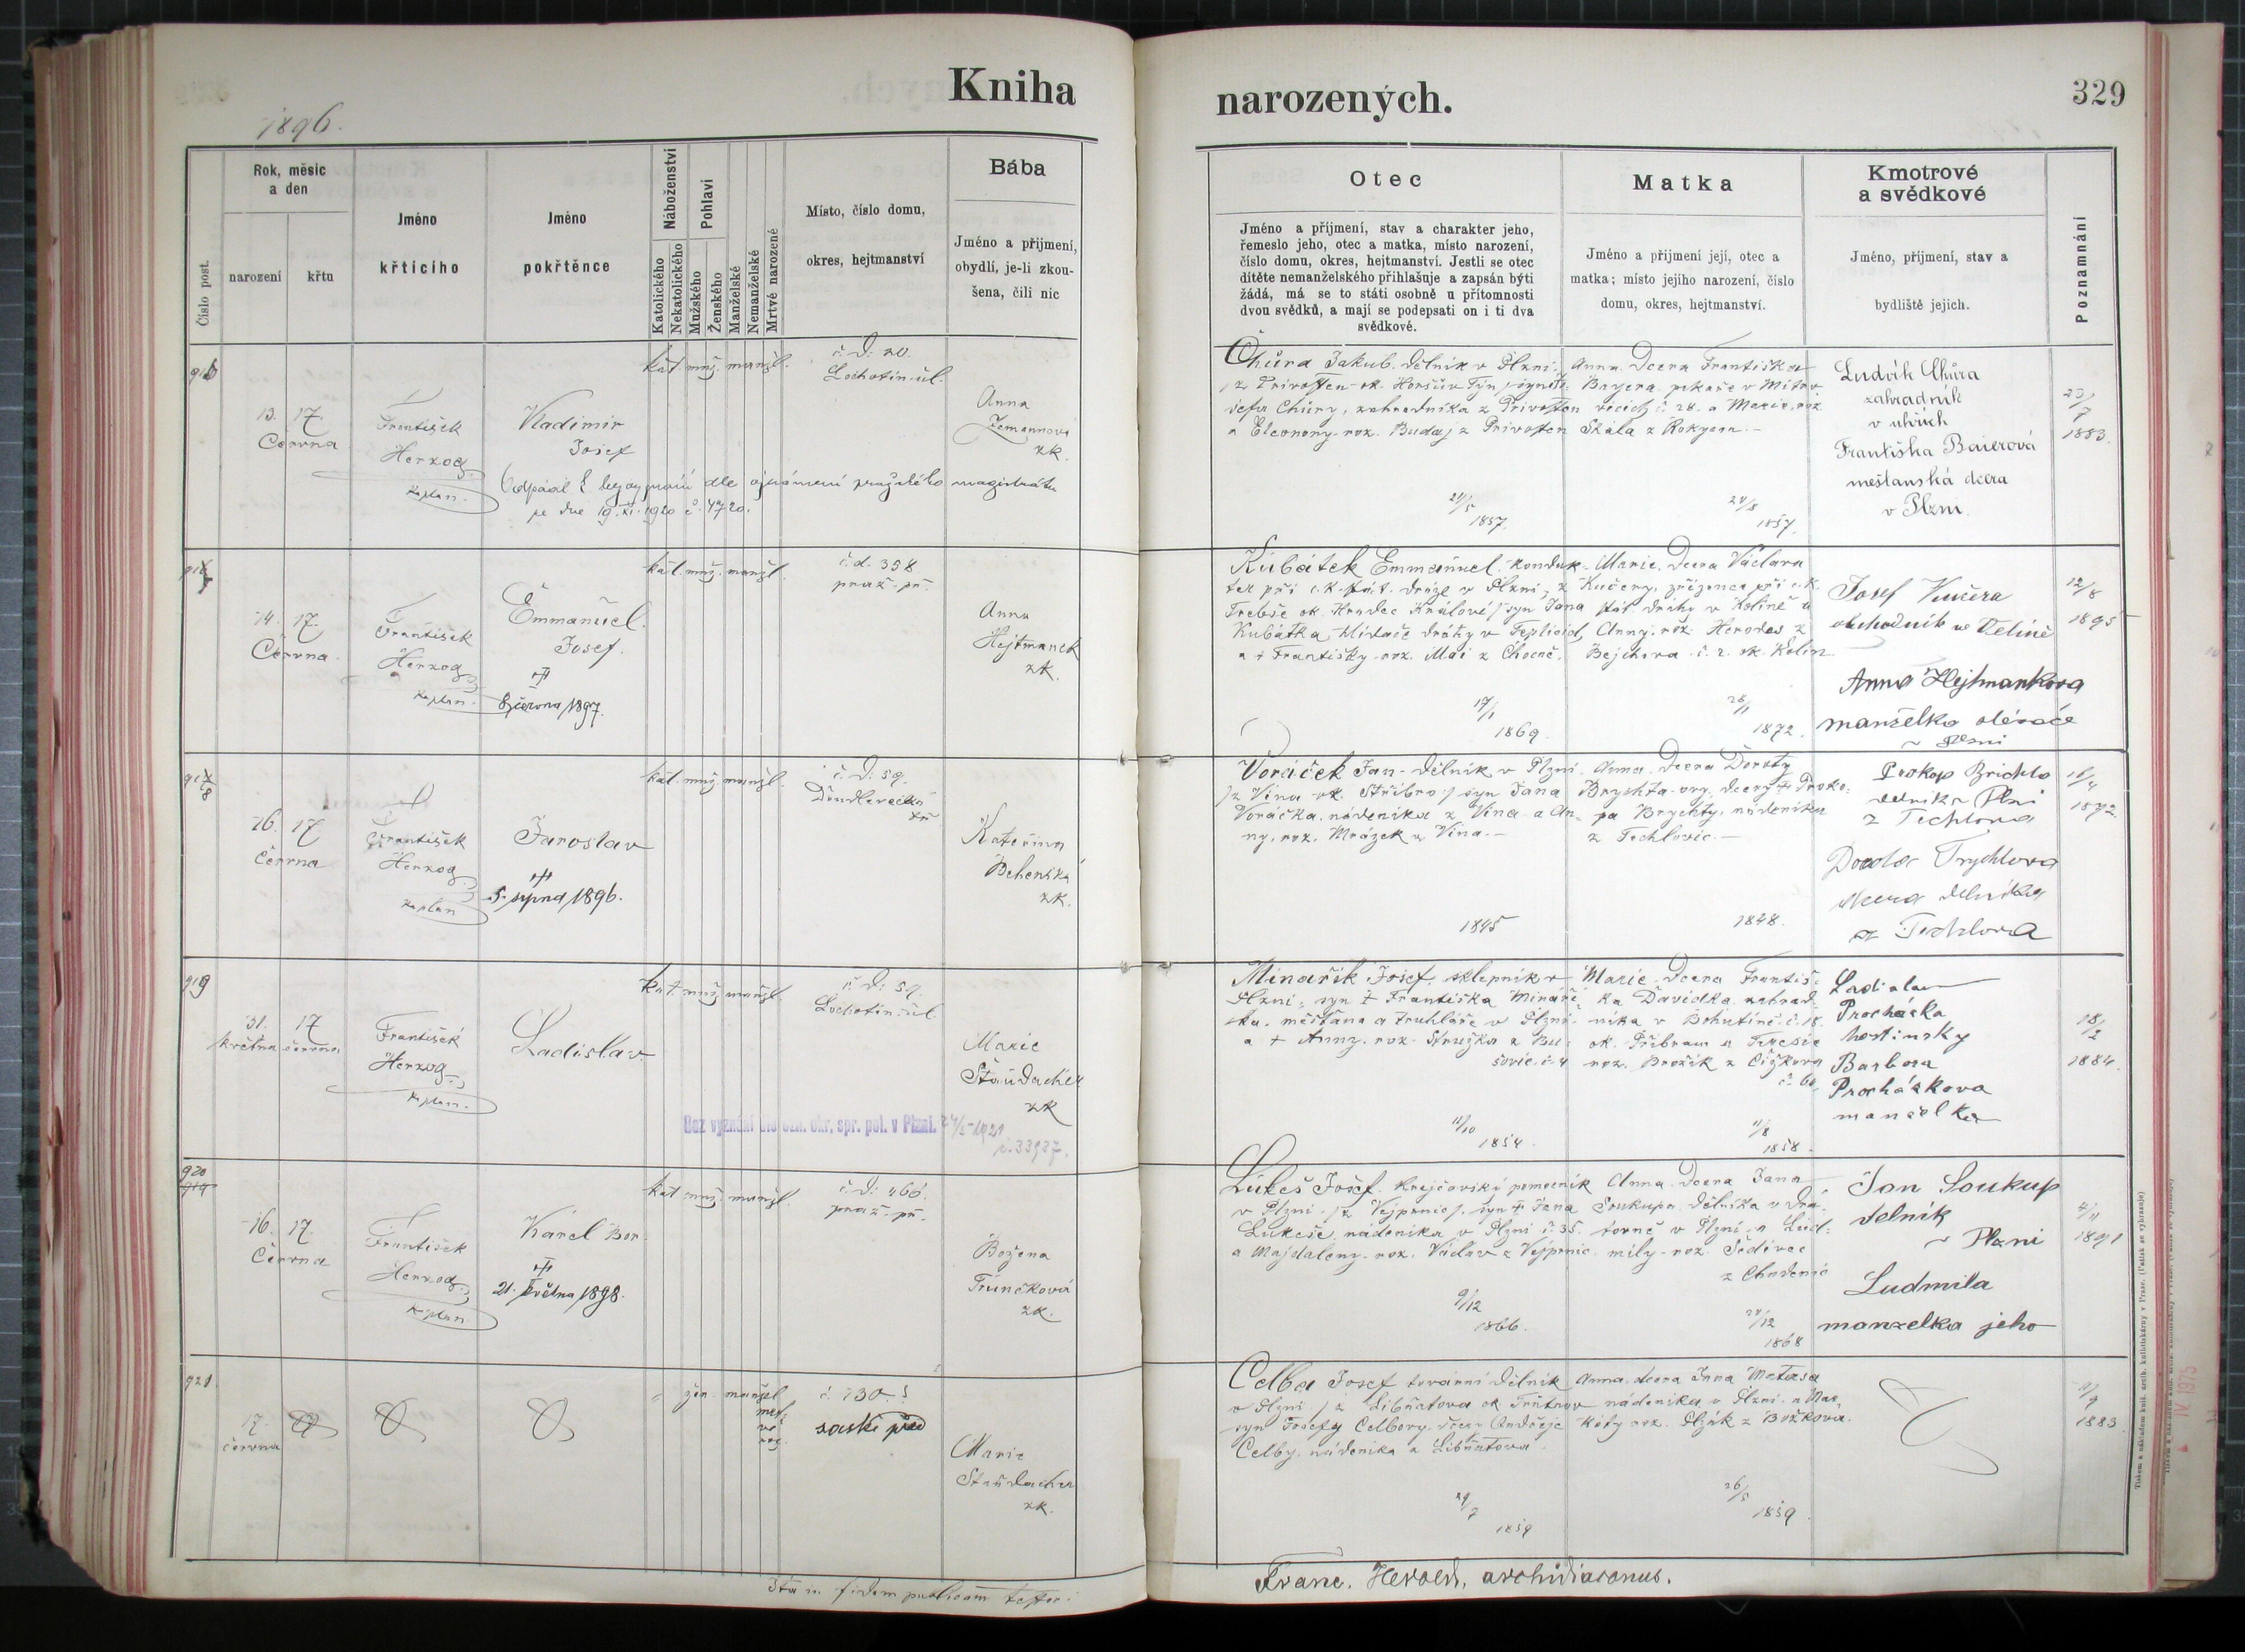 Kniha
narozených.
329
1896.
Rok, měsíc
a den
narození
křtu
Číslo post.
Jméno
křtícího
Jméno
pokřtěnce
Náboženství
Katolického
Nekatolického
Pohlaví
Mužského
Ženského
Manželské
Nemanželské
Mrtvě narozené
Místo, číslo domu,
okres, hejtmanství
Bába
Jméno a přijmení,
obydlí, je-li zkou-
šena, čili nic
Otec
Jméno a příjmení, stav a charakter jeho,
řemeslo jeho, otec a matka, místo narození,
číslo domu, okres, hejtmanství. Jestli se otec
dítěte nemanželského přihlašuje a zapsán býti
žádá, má se to státi osobně u přítomnosti
dvou svědků, a mají se podepsati on i ti dva
svědkové.
Matka
Jméno a přijmení její, otec a
matka; místo jejího narození, číslo
domu, okres, hejtmanství.
Kmotrové
a svědkové
Jméno, příjmení, stav a
bydliště jejich.
Poznamnání
13. 17.
Června
František
Herzog
kaplan.
Vladimir
Josef
kat. muž. manžl.
č. d. 20.
Lochotín. úl.
Anna
Zemannova
zk.
Odpadl dle oznámení pražského magistrátu
ze dne 19. XI. 1920 č. 4720.
Chůra Jakub. dělník v Plzni,
a Eleonony roz. Buday z Privosten
24/5
1857.
Anna. Dcera Františka
Bayera. pekaře v
Skála z Rokycan.
24/8
1857.
Ludvík Chůra
zahradník
Františka Baierová
mešťanská dcera
v Plzni.
23/
7
1883.
14. 17.
Června.
František
Herzog
kaplan.
Emmanuel.
Josef.
8 června 1897.
kat. muž. manžl.
č. d. 358
praž. př.
Anna
Hejtmanek
zk.
Kubátek Emmanuel. konduk-
ter při c. k. stát. dráze v Plzni, z
Třebše ok. Hradec Králové) syn Jana
Kubátka, hlídače dráhy v Teplicích,
a † Františky roz. Mai z Chocně.
17/1
1869.
Marie. Dcera Václava
Kučery, zřízence při c. k.
stát. dráhy v Kolíně a
Anny. roz. Herodes z
č. 2. ok. Kolín
28/1
1872.
Josef Kučera
obchodník ve Velimě
Anna Hejtmankova
manželka
v Plzni
12/8
1895
16. 17
Června
František
Herzog
kaplan
Jaroslav
5. srpna 1896.
kat. muž. manžl.
č. d. 59.
Kateřina
Behenská
zk.
Voráček Jan. dělník v Plzni.
(z Vina ok. Stříbro) syn Jana
Voráčka. nádeníka z Vina a An-
ny. roz. Mrázek z Vina.
1845
Anna. Dcera Doroty
Brychta
pa Brychty. nádeníka
z Techlovic.
1848.
Prokop Brichta
z Techlova
dcera dělníka
z Techlova
16/4
1872.
919
31. 17
května června
František
Herzog
kaplan.
Ladislav.
kat. muž. manžl.
č. d. 59.
Lochotín. úl.
Marie
Staudacher
zk
Bez vyznání dle ozn. okr. spr. pol. v Plzni. 27/5 1921
č. 33937.
Minařík Josef. sklepník v
Plzni, syn † Františka Minaří-
ka. měšťana a truhláře v Plzni.
a † Anny. roz. Stružka z Bu-
šovic. č. 4
11/10
1854.
Marie. Dcera Františ-
ka Davídka zahrad-
níka v Bohutíně č. 18.
ok. Příbram a Terezie
roz. Brožík z Čížkova
č. 60.
11/8
1858.
Ladislav
Procházka
hostinsky
Barbora
Procházkova
manželka
18/
2
1884.
920
919
16. 17.
Června
František
Herzog
kaplan
Karel Bor.
21. května 1898.
kat. muž. manžl.
č. d. 466.
praž. př.
Božena
Trunčková
zk.
Lukeš Josef. Krejčovský pomocník
v Plzni. (z Vejprnic). syn † Jana
Lukeše, nádeníka v Plzni č. 35.
a Majdaleny. roz. Václav z Vejprnic
9/12
1866.
Anna. Dcera Jana
Soukupa. dělníka v dra-
tovně v Plzni a Lud-
mily. roz. Šedivec
z Chudenic
24/12
1868
Jan Soukup
delnik
v Plzni
Ludmila
manzelka jeho
4/11
1891
921.
17.
června
žen. manžel
č. 130.
saské před
Marie
Staudacher
zk.
Celba Josef tovární dělník
v Plzni (z Libňatova ok Trutnov
syn Josefy Celbovy. dcery Ondřeje
Celby. nádeníka z Libňatova
29/7
1859
Anna. dcera Jana Matasa
nádeníka v Plzni. a Mar-
kéty roz. Plzák z Božkova.
26/5
1859.
11/9
1883
Ita in fidem publicam testor:
Franc. Herold, archidiaconus.